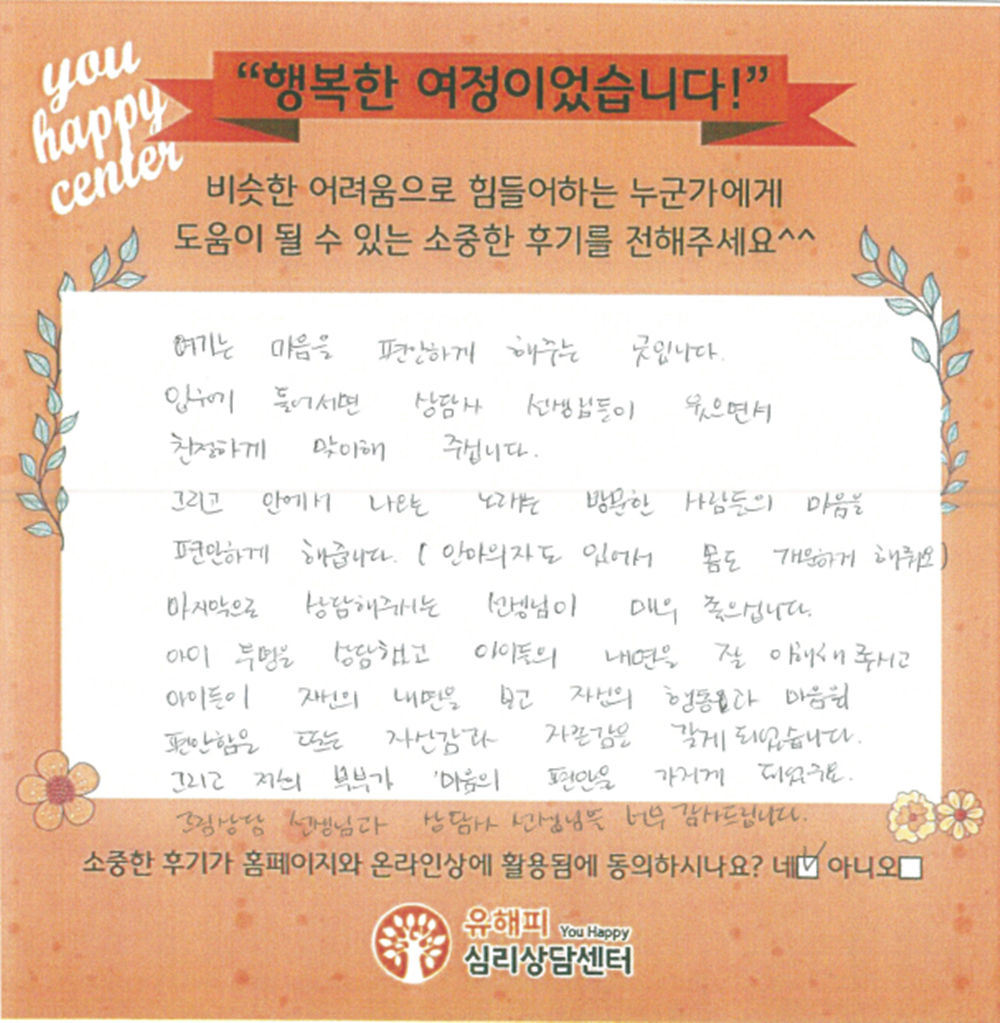 you
happy
center
“행복한 여정이었습니다!”
비슷한 어려움으로 힘들어하는 누군가에게
도움이 될 수 있는 소중한 후기를 전해주세요^^
여기는 마음을 편안하게 해주는 곳입니다.
입구에 들어서면 상담사 선생님들이 웃으면서
친절하게 맞이해 주십니다.
그리고 안에서 나오는 노래는 방문한 사람들의 마음을
편안하게 해줍니다. (안마의자도 있어서 몸도 개운하게 해줘요)
마지막으로 상담해주시는 선생님이 매우 좋으십니다.
아이 두명을 상담했고 아이들의 내면을 잘 이해해주시고
아이들이 자신의 내면을 보고 자신의 행동과 마음의
편안함을 또는 자신감과 자존감을 갖게 되었습니다.
그리고 저희 부부가 마음의 편안을 가지게 되었구요.
그림상담 선생님과 상담사 선생님들 너무 감사드립니다.
소중한 후기가 홈페이지와 온라인상에 활용됨에 동의하시나요? 네 아니오
유해피 You Happy
심리상담센터